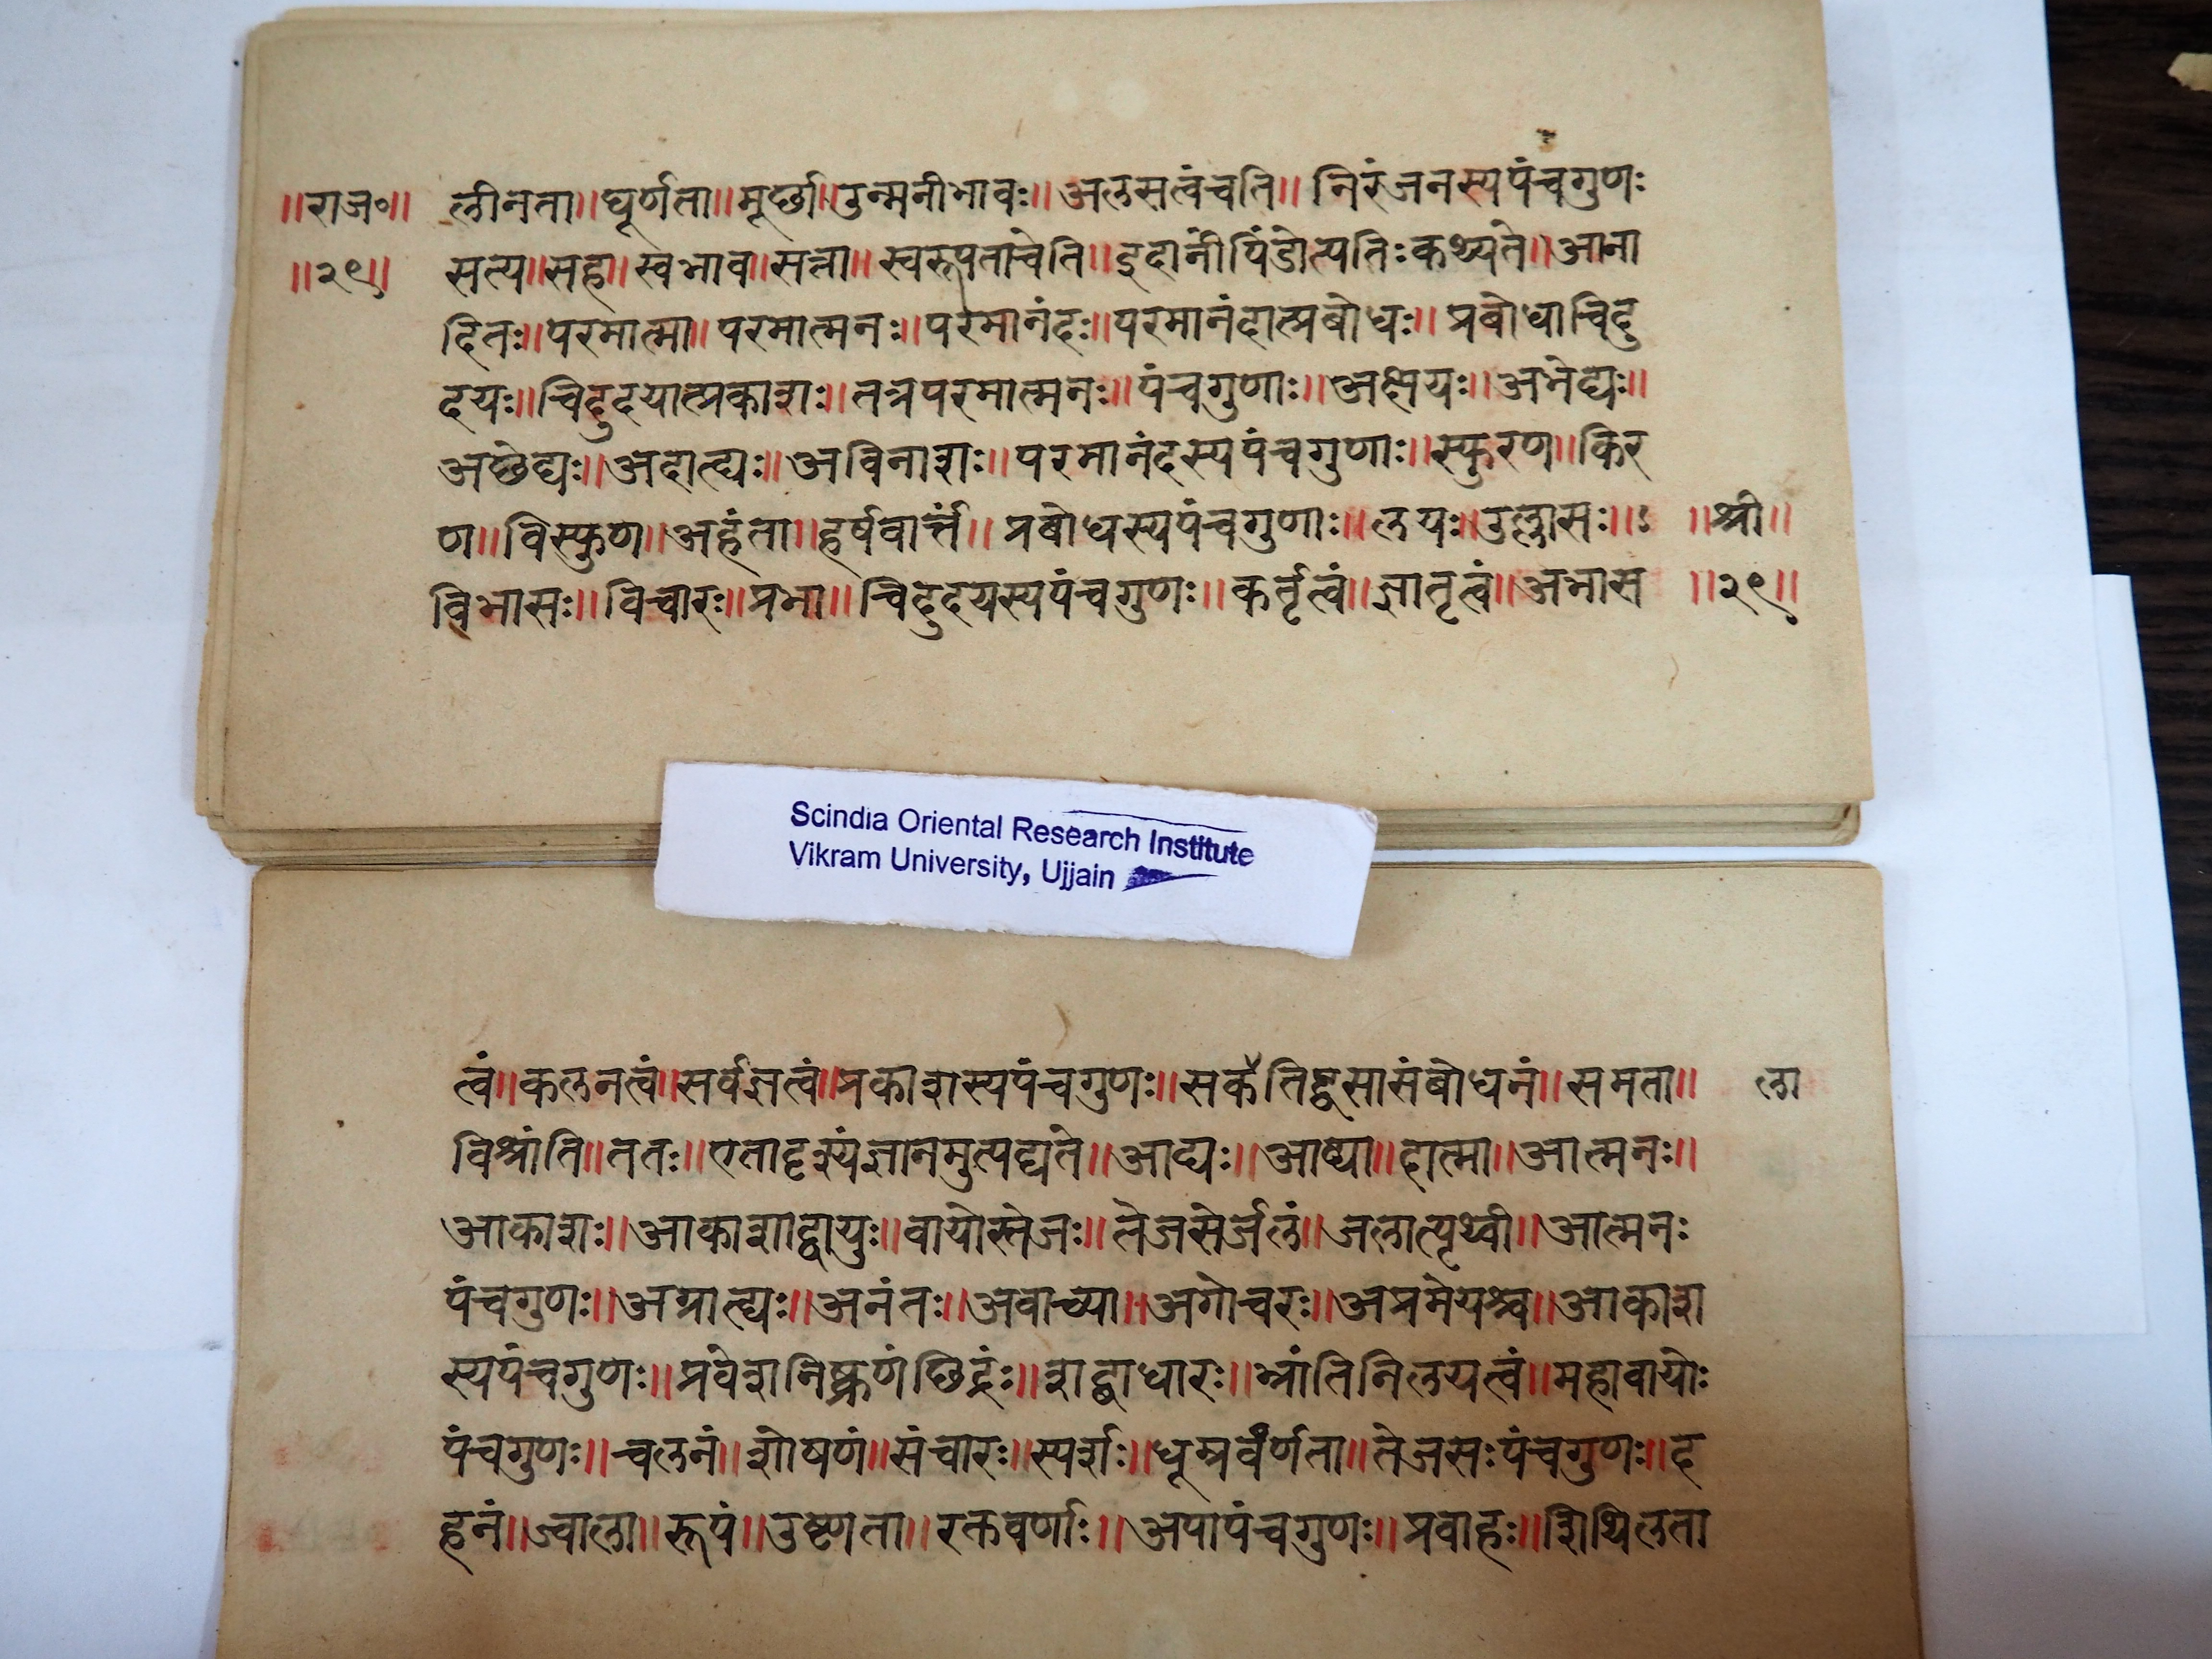 ॥राज०॥ लीनता॥घूर्णता॥मूर्छा॥उन्मनीभावः॥अलसत्वंचति॥निरंजनस्यपंचगुणः
॥२९॥ सत्य॥सहा॥स्वभाव॥सत्ता॥स्वरूपताचेति॥इदांनीपिंडोत्पतिःकथ्यते॥आना
दितः॥परमात्मा॥परमात्मनः॥परमानंदः॥परमानंदात्प्रबोधः॥प्रबोधाच्चिदु
दयः॥चिदुदयात्प्रकाशः॥तत्रपरमात्मनः॥पंचगुणाः॥अक्षयः॥अभेद्यः॥
अछेद्यः॥अदाह्यः॥अविनाशः॥परमानंदस्यपंचगुणाः॥स्फुरण॥किर
ण॥विस्फुण॥अहंता॥हर्षवार्त्तं॥प्रबोधस्यपंचगुणाः॥लयः॥उल्लासः॥ऽ ॥श्री॥
विभासः॥विचारः॥प्रभा॥चिदुदयस्यपंचगुणः॥कर्तृत्वं॥ज्ञातृत्वं॥अभास ॥२९॥
Scindia Oriental Research Institute
Vikram University, Ujjain
त्वं॥कलनत्वं॥सर्वज्ञत्वं॥प्रकाशस्यपंचगुणः॥संबोधनं॥समता॥ ला
विश्रांति॥ततः॥एतादृश्यंज्ञानमुत्पद्यते॥आद्यः॥दात्मा॥आत्मनः॥
आकाशः॥आकाशाद्वायुः॥वायोस्तेजः॥तेजसेर्जलं॥जलात्पृथ्वी॥आत्मनः
पंचगुणः॥अग्राह्यः॥अनंतः॥अवाच्या॥अगोचरः॥अप्रमेयश्च॥आकाश
स्यपंचगुणः॥प्रवेशनिष्क्रणंछिद्रंः॥शद्वाधारः॥भ्रांतिनिलयत्वं॥महावायोः
पंचगुणः॥चलनं॥शोषणं॥संचारः॥स्पर्शः॥धूम्रवंर्णता॥तेजसःपंचगुणः॥द
हनं॥ज्वाला॥रूपं॥उष्णता॥रक्तवर्णाः॥अपापंचगुणः॥प्रवाहः॥शिथिलता